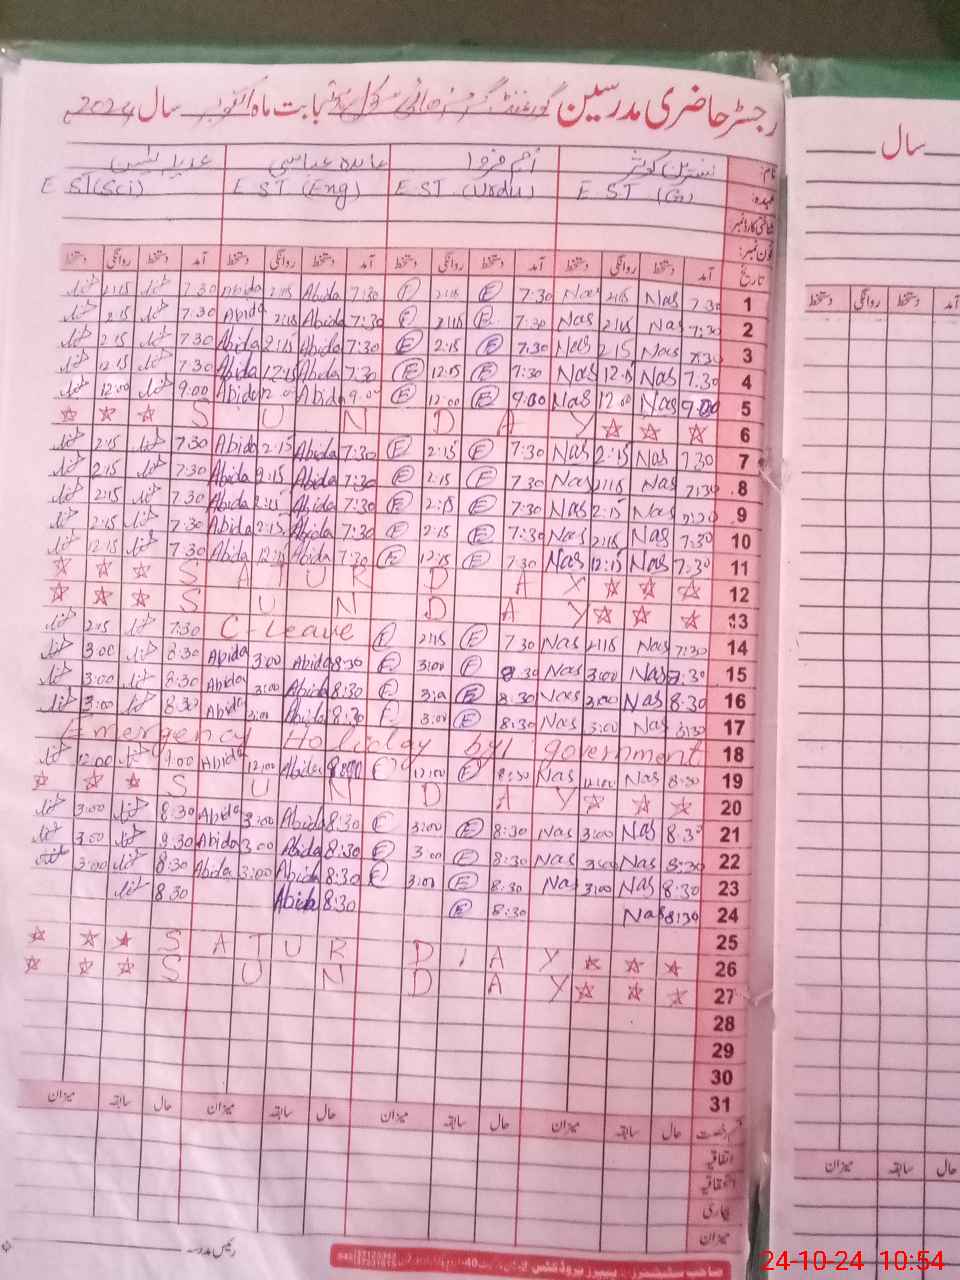 رجسٹر حاضری مدرسین گورنمنٹ گرلز بابت ماہ اکتوبر سال 2024
سال
نام: نسرین کوثر اُم فروا عابدہ عباسی
عہدہ: EST (G) EST (Urdu) EST (Eng) EST(Sci)
شناختی کارڈ نمبر
فون نمبر:
تاریخ آمد دستخط روانگی دستخط آمد دستخط روانگی دستخط آمد دستخط روانگی دستخط آمد دستخط روانگی دستخط
آمد دستخط روانگی دستخط
1 7.30 Nas 2:15 Nas 7:30 E 2:15 E 7:30 Abida 2:15 Abida 7.30 2:15
2 7:30 Nas 2:15 Nas 7:30 E 2:15 E 7:30 Abida 2:15 Abida 7.30 2:15
3 7:30 Nas 2:15 Nas 7:30 E 2:15 E 7:30 Abida 2:15 Abida 7.30 2:15
4 7.30 Nas 12:15 Nas 7:30 E 12:15 E 7:30 Abida 12:15 Abida 7.30 12:15
5 9.00 Nas 12:00 Nas 9.00 E 12:00 E 9.00 Abida 12:00 Abida 9.00 12:00
6 S U N D A Y
7 7.30 Nas 2:15 Nas 7:30 E 2:15 E 7:30 Abida 2:15 Abida 7.30 2:15
8 7:30 Nas 2:15 Nas 7:30 E 2:15 E 7:30 Abida 2:15 Abida 7:30 2:15
9 7:30 Nas 2:15 Nas 7:30 E 2:15 E 7:30 Abida 2:15 Abida 7.30 2:15
10 7:30 Nas 2:15 Nas 7:30 E 2:15 E 7:30 Abida 2:15 Abida 7:30 2:15
11 7:30 Nas 12:15 Nas 7:30 E 12:15 E 7:30 Abida 12:15 Abida 7:30 12:15
12 S A T U R D A Y
13 S U N D A Y
14 7:30 Nas 2:15 Nas 7:30 E 2:15 E C-Leave 7:30 2:15
15 8:30 Nas 3:00 Nas 8:30 E 3:00 E 8:30 Abida 3:00 Abida 8:30 3:00
16 8.30 Nas 3:00 Nas 8:30 E 3:00 E 8:30 Abida 3:00 Abida 8:30 3:00
17 8:30 Nas 3:00 Nas 8:30 E 3:00 E 8:30 Abida 3:00 Abida 8:30 3:00
18 Emergency Holiday by government
19 8:30 Nas 12:00 Nas 8:30 E 12:00 E Abida 12:00 Abida 9:00 12:00
20 S U N D A Y
21 8:30 Nas 3:00 Nas 8:30 E 3:00 E 8:30 Abida 3:00 Abida 8:30 3:00
22 8:30 Nas 3:00 Nas 8:30 E 3:00 E 8:30 Abida 3:00 Abida 3:00
23 8:30 Nas 3:00 Nas 8:30 E 3:00 E 8:30 Abida 3:00 Abida 8:30 3:00
24 8:30 Nas 8:30 E 8:30 Abida 8:30
25
26 S A T U R D A Y
27 S U N D A Y
28
29
30
31
رخصت حال سابقہ میزان حال سابقہ میزان حال سابقہ میزان حال سابقہ میزان
حال سابقہ میزان
اتفاقیہ
بیماری
میزان
رئیس مدرسہ
24-10-24 10:54